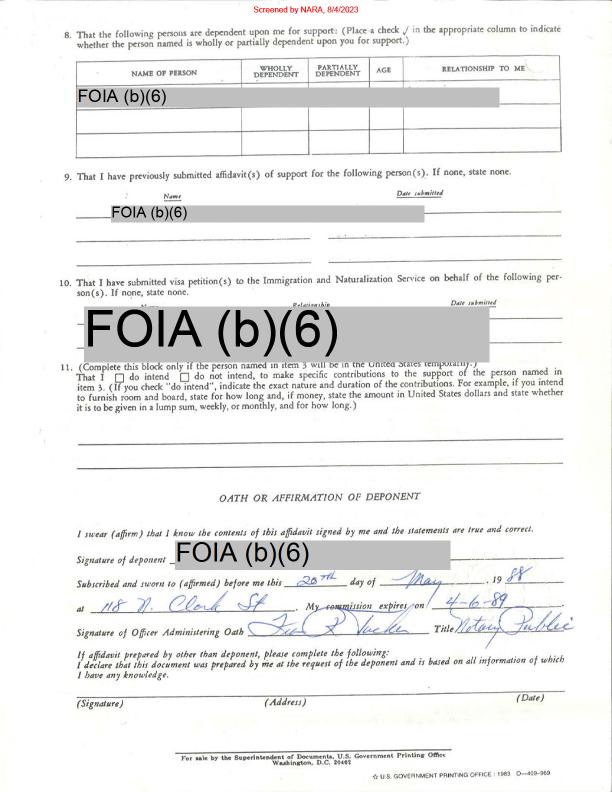 Screened by NARA, 8/4/2023
8. That the following persons are dependent upon me for support: (Place a check √ in the appropriate column to indicate
whether the person named is wholly or partially dependent upon you for support.)
NAME OF PERSON WHOLLY DEPENDENT PARTIALLY DEPENDENT AGE RELATIONSHIP TO ME
FOIA (b)(6)
9. That I have previously submitted affidavit(s) of support for the following person(s). If none, state none.
Name Date submitted
FOIA (b)(6)
10. That I have submitted visa petition(s) to the Immigration and Naturalization Service on behalf of the following per-
son(s). If none, state none.
Relationship Date submitted
FOIA (b)(6)
11. (Complete this block only if the person named in item 3 will be in the United States temporarily.)
That I ☐ do intend ☐ do not intend, to make specific contributions to the support of the person named in
item 3. (If you check "do intend", indicate the exact nature and duration of the contributions. For example, if you intend
to furnish room and board, state for how long and, if money, state the amount in United States dollars and state whether
it is to be given in a lump sum, weekly, or monthly, and for how long.)
OATH OR AFFIRMATION OF DEPONENT
I swear (affirm) that I know the contents of this affidavit signed by me and the statements are true and correct.
Signature of deponent FOIA (b)(6)
Subscribed and sworn to (affirmed) before me this 20TH day of May , 19 88
at 118 N. Clark St . My commission expires on 4-6-89
Signature of Officer Administering Oath Title Notary Public
If affidavit prepared by other than deponent, please complete the following:
I declare that this document was prepared by me at the request of the deponent and is based on all information of which
I have any knowledge.
(Signature) (Address) (Date)
For sale by the Superintendent of Documents, U.S. Government Printing Office
Washington, D.C. 20402
☆ U.S. GOVERNMENT PRINTING OFFICE : 1983 O—409-969